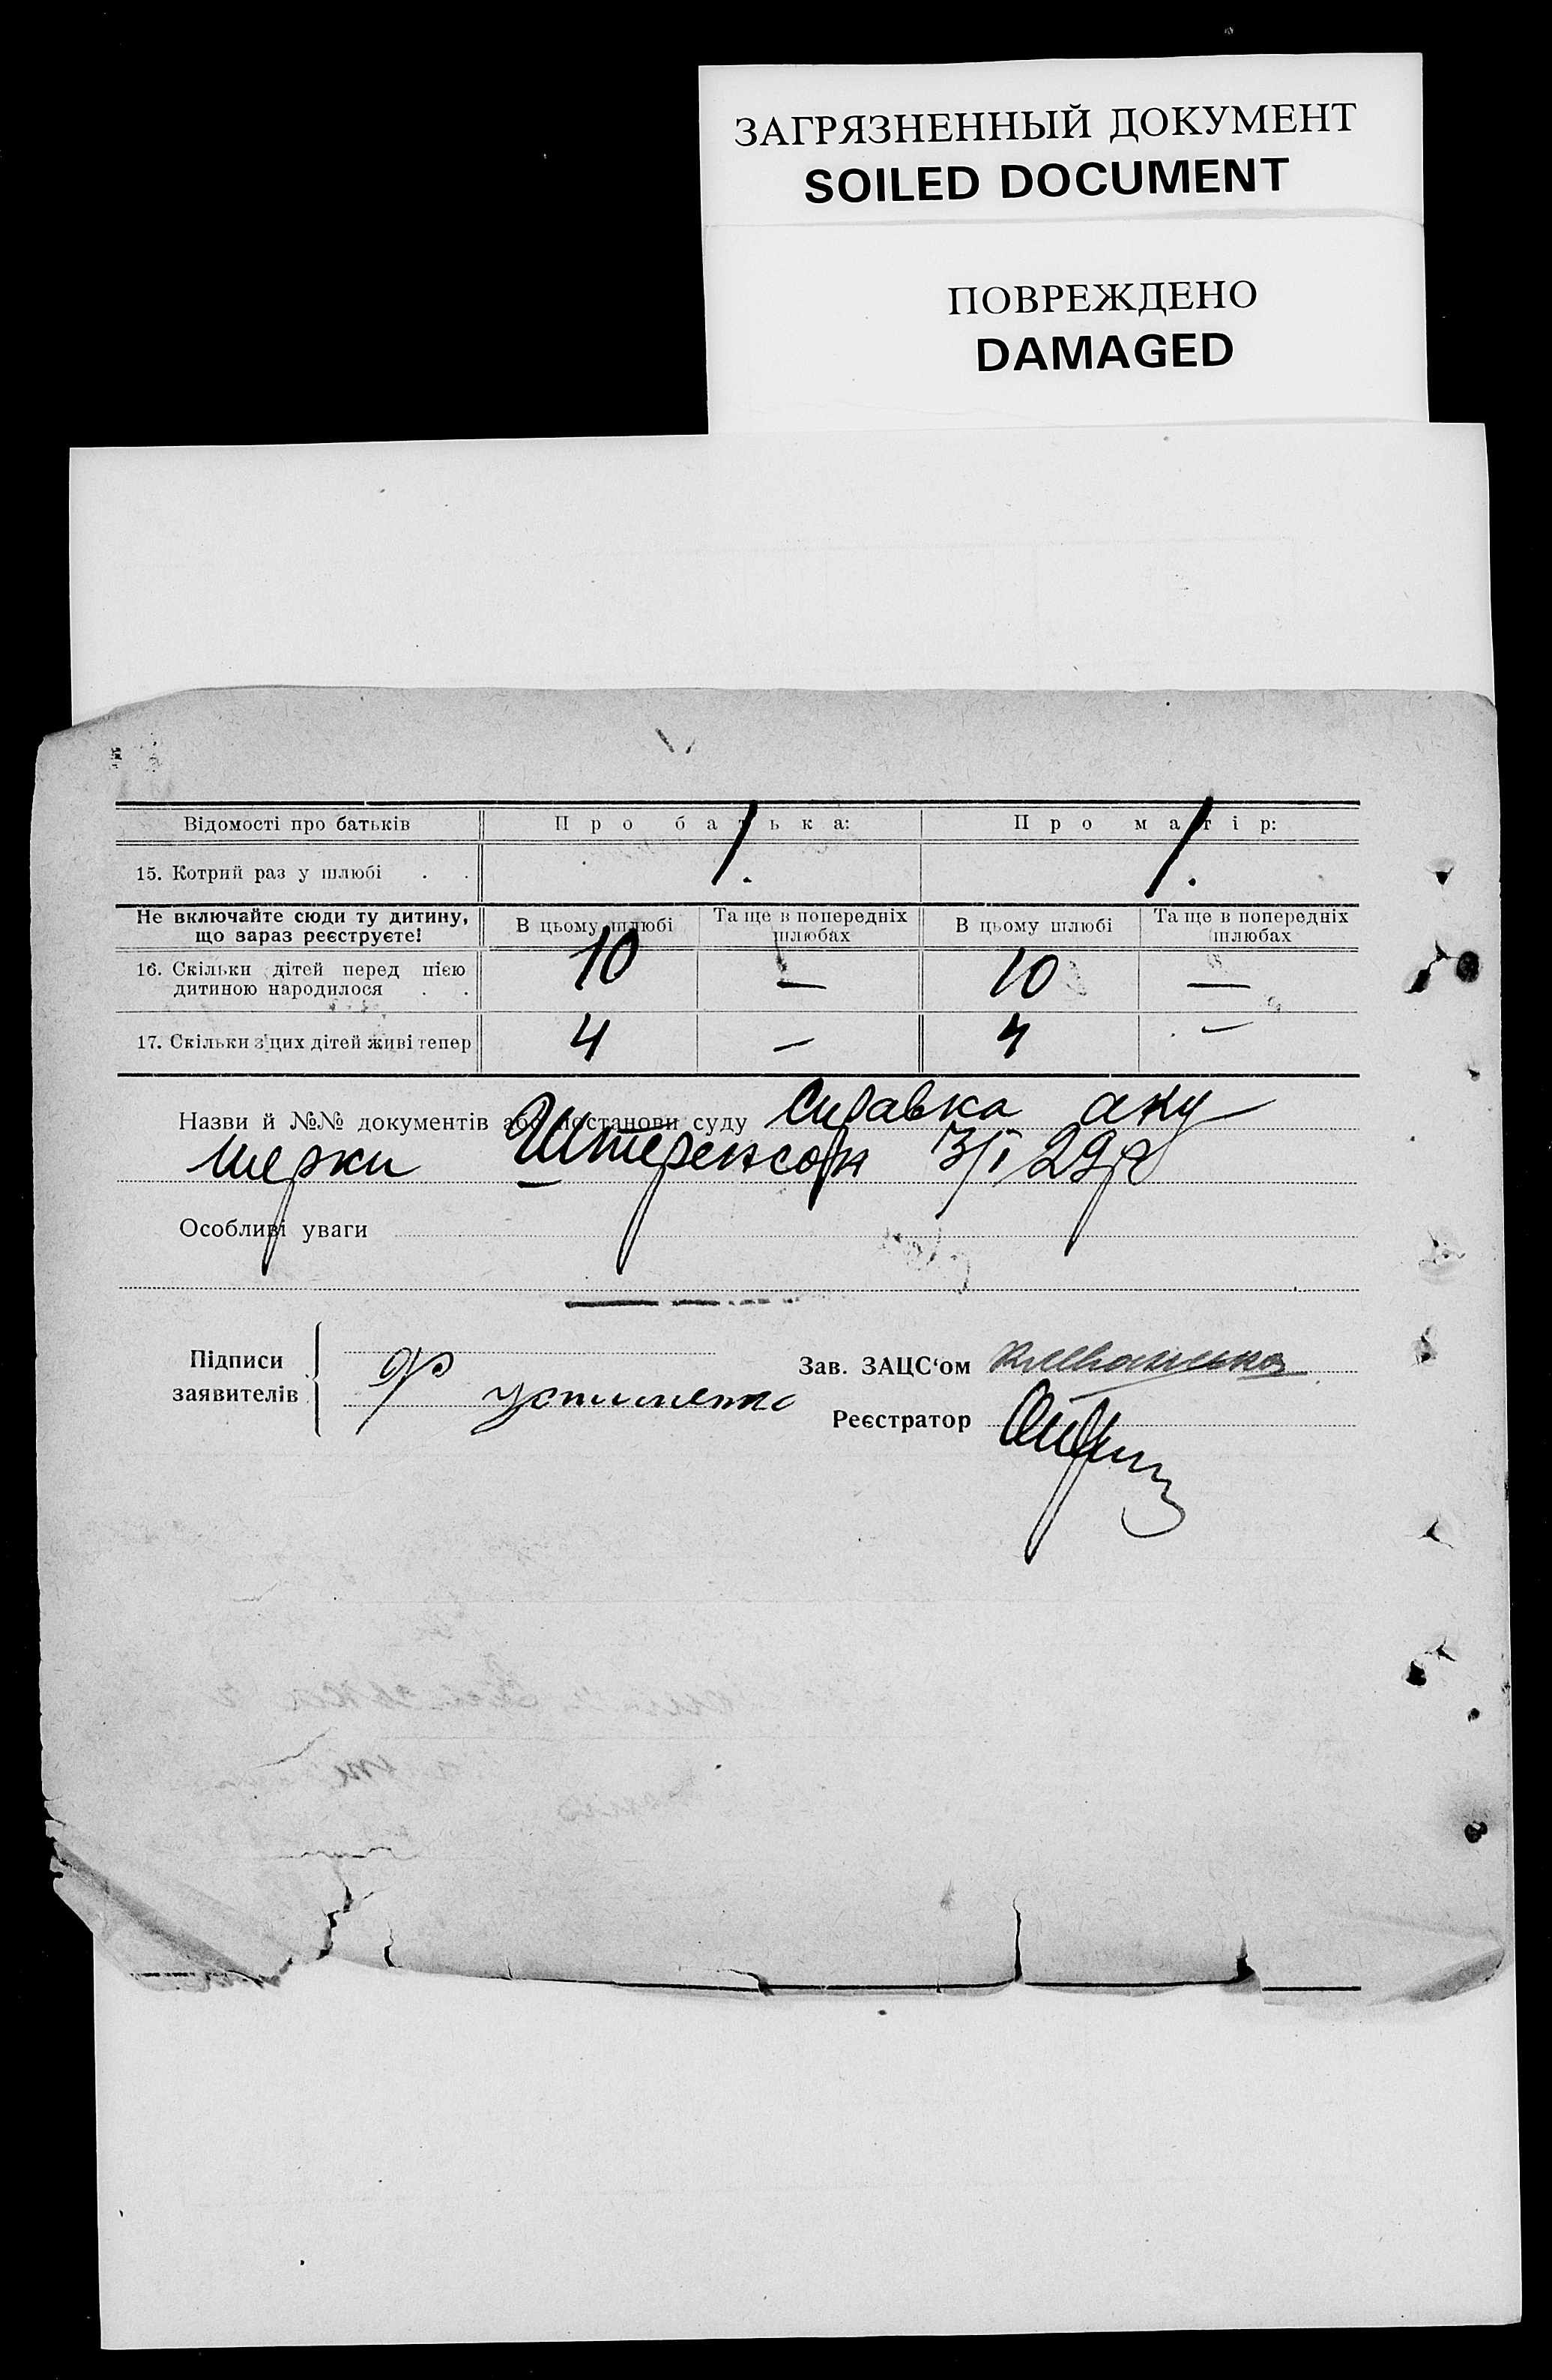 ЗАГРЯЗНЕННЫЙ ДОКУМЕНТ
SOILED DOCUMENT
ПОВРЕЖДЕНО
DAMAGED
Відомості про батьків Про батька: Про матір:
15. Котрий раз у шлюбі . . 1. 1.
Не включайте сюди ту дитину, що зараз реєструєте! В цьому шлюбі Та ще в попередніх шлюбах В цьому шлюбі Та ще в попередніх шлюбах
16. Скільки дітей перед цією дитиною народилося . . 10 — 10 —
17. Скільки з цих дітей живі тепер 4 — 4 —
Назви й №№ документів або постанови суду Справка аку
шерки Штеренсон 3/I 29 р
Особливі уваги
Підписи заявителів
Устименко
Зав. ЗАЦС'ом
Реєстратор